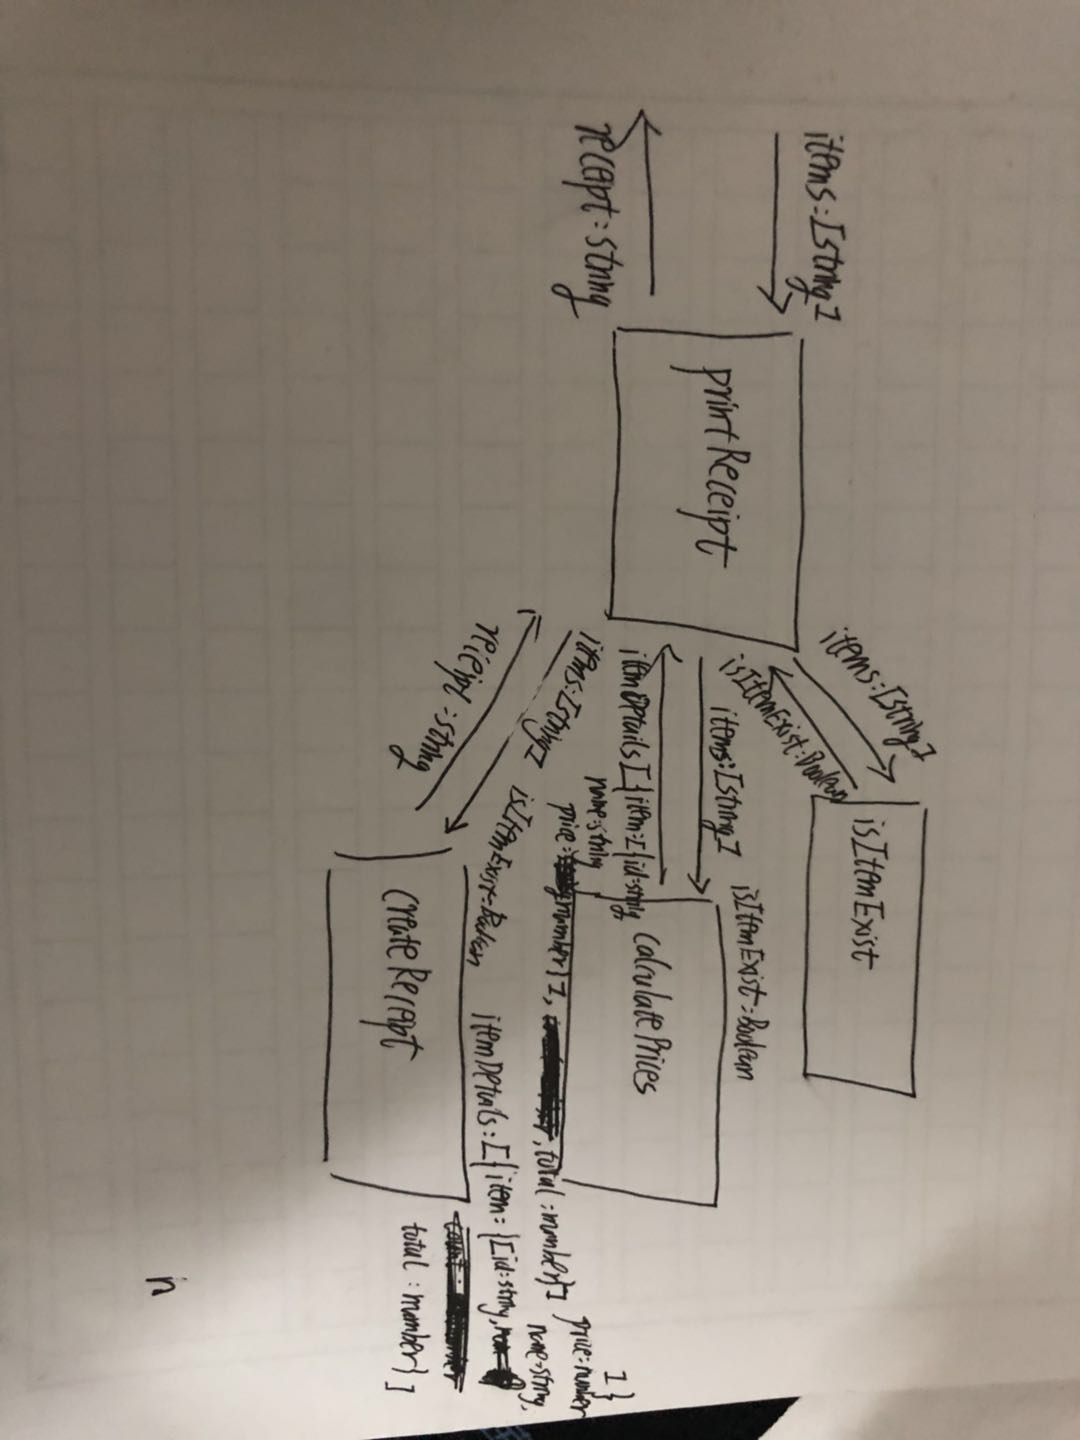 items:[string]
receipt:string
printReceipt
items:[string]
isItemExist:Boolean
isItemExist
items:[string]
isItemExist:Boolean
itemDetails[{item:[{id:string
name:string
price:number}],
,total:number}]
calculatePrices
items:[string]
isItemExist:Boolean
itemDetails:[{item:{[id:string,
name:string,
price:number
}
]
total:number}]
reciept:string
createReceipt
n